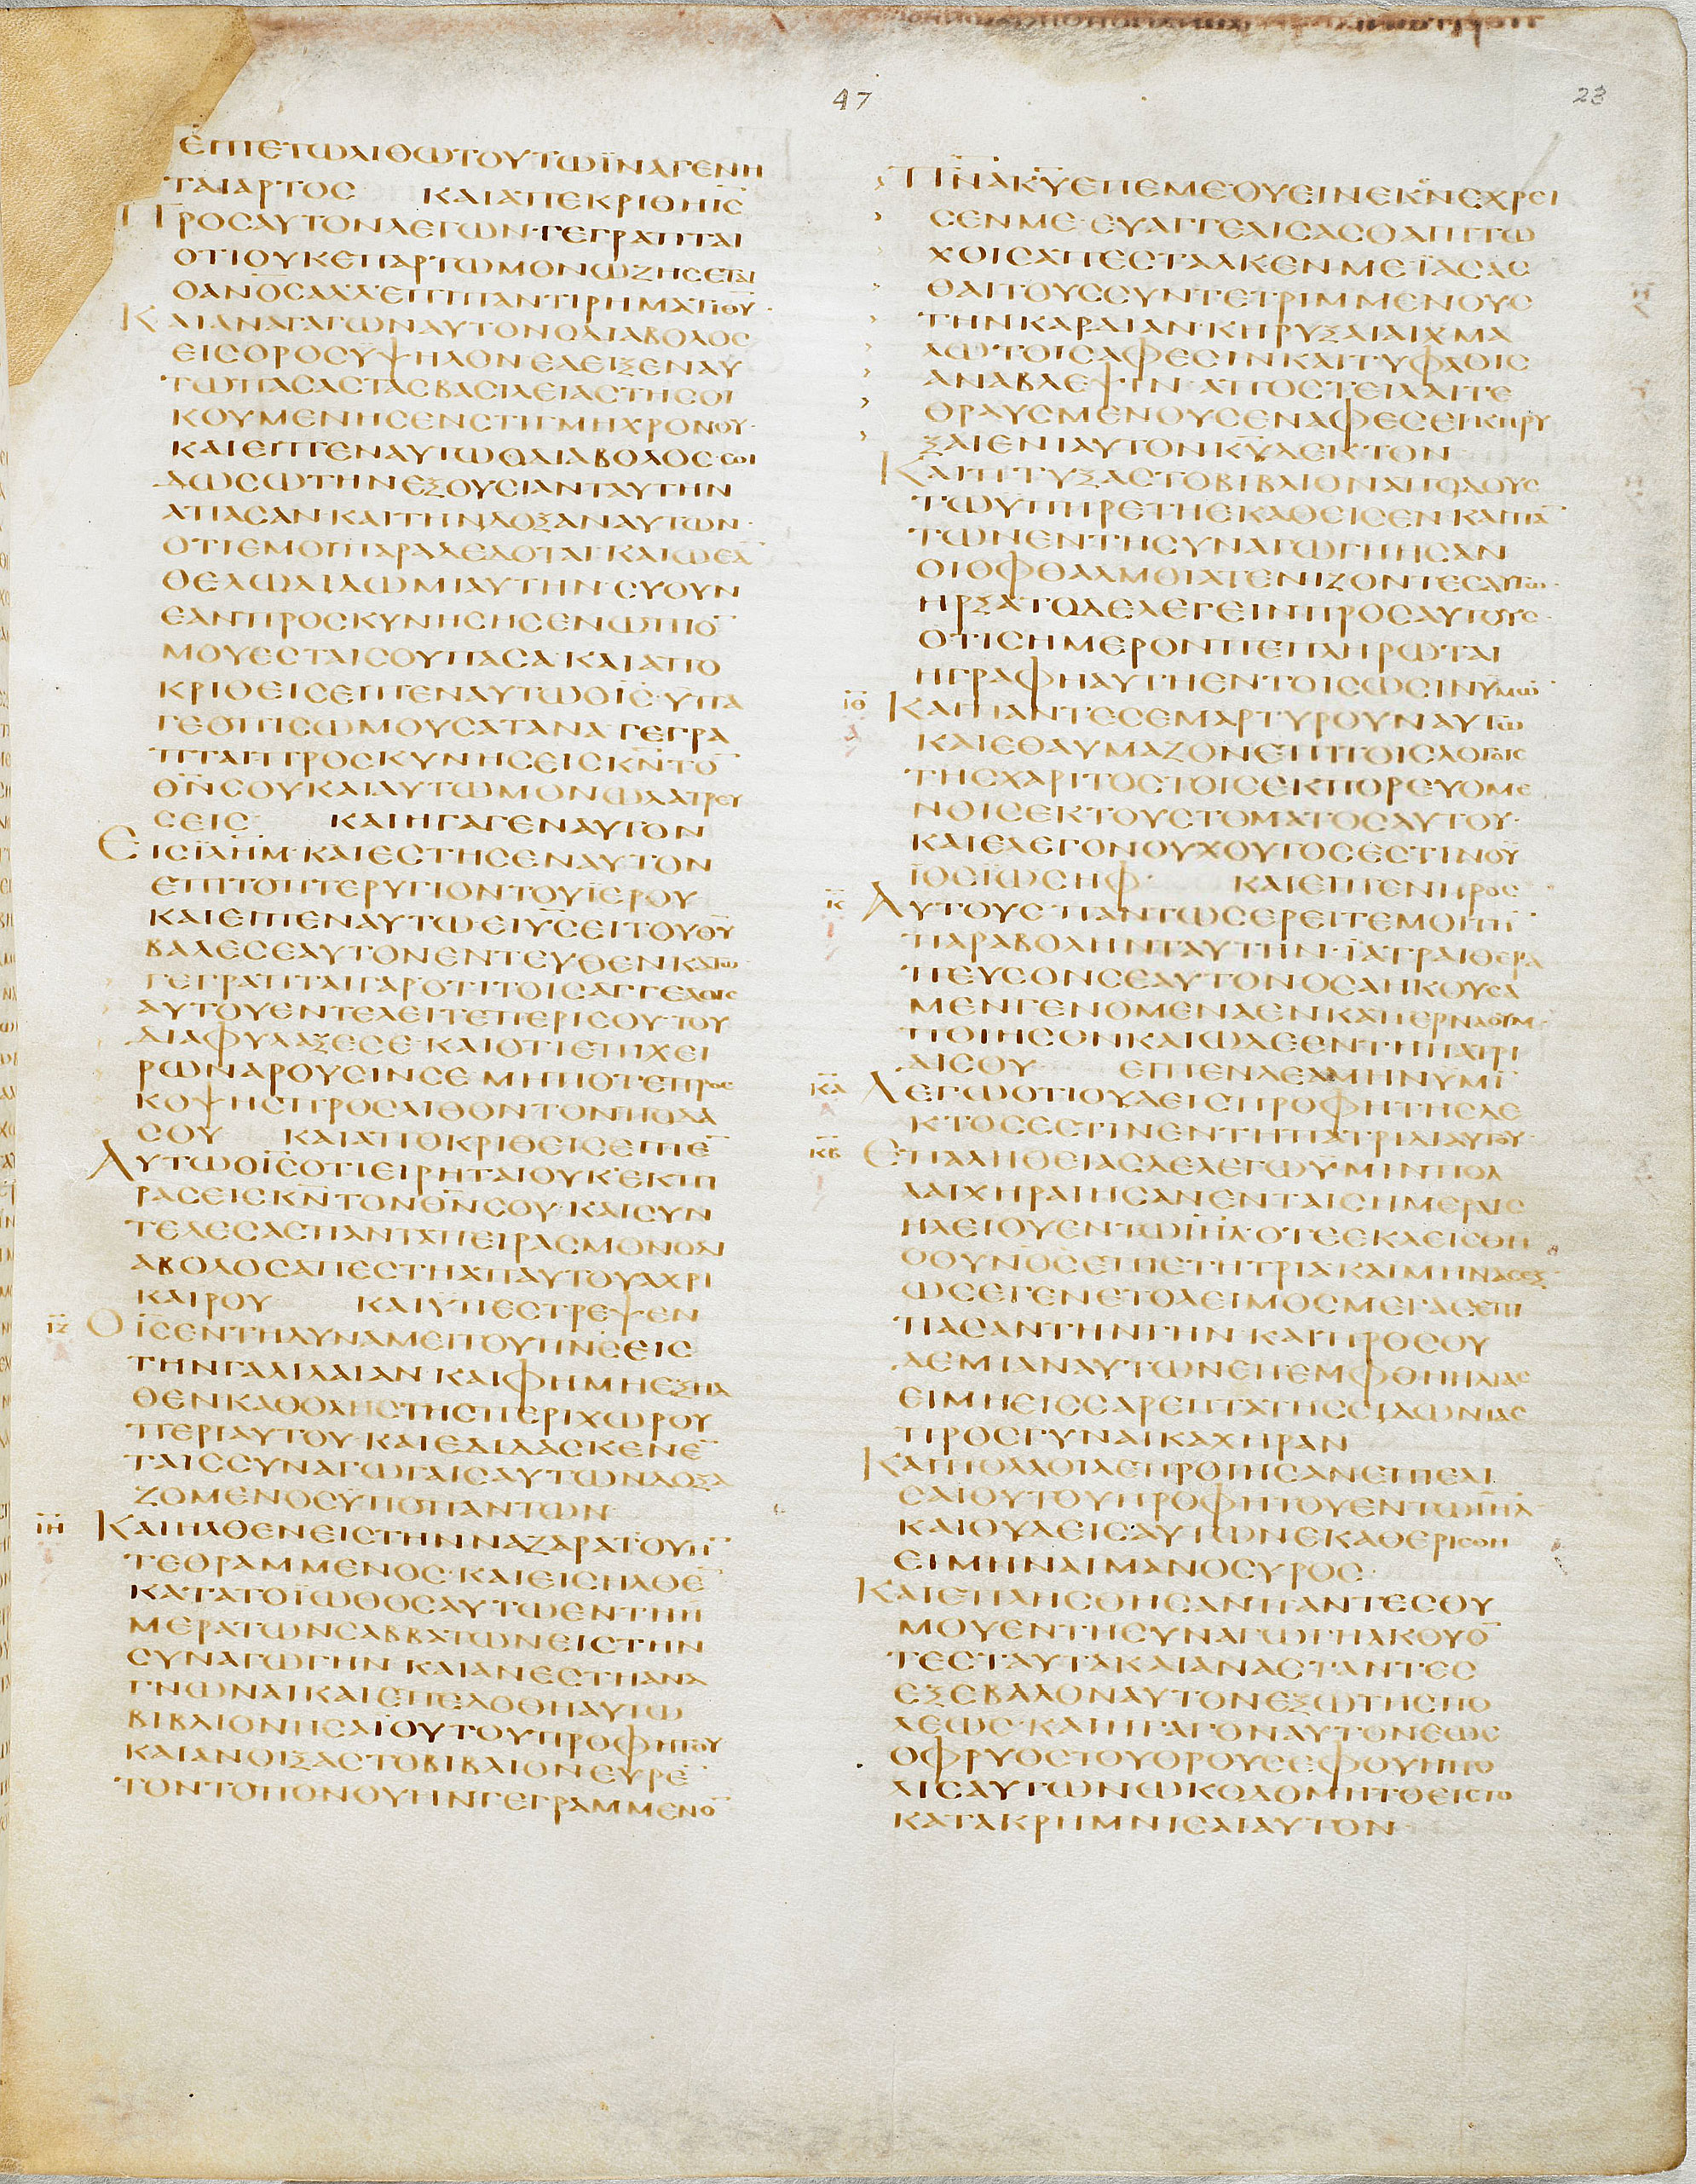 47
23
ΕΙΠΕΤΩΛΙΘΩΤΟΥΤΩΪΝΑΓΕΝΗ
ΤΑΙΑΡΤΟΣ ΚΑΙΑΠΕΚΡΙΘΗΙ̅Σ̅
ΠΡΟΣΑΥΤΟΝΛΕΓΩΝ·ΓΕΓΡΑΠΤΑΙ
ΟΤΙΟΥΚΕΠΑΡΤΩΜΟΝΩΖΗΣΕΤΑΙ
ΟΑΝΟ̅Σ̅ΑΛΛΕΠΙΠΑΝΤΙΡΗΜΑΤΙΘ̅Υ̅·
ΚΑΙΑΝΑΓΑΓΩΝΑΥΤΟΝΟΔΙΑΒΟΛΟΣ
ΕΙΣΟΡΟΣΫΨΗΛΟΝΕΔΕΙΞΕΝΑΥ
ΤΩΠΑΣΑΣΤΑΣΒΑΣΙΛΕΙΑΣΤΗΣΟΙ
ΚΟΥΜΕΝΗΣΕΝΣΤΙΓΜΗΧΡΟΝΟΥ·
ΚΑΙΕΙΠΕΝΑΥΤΩΟΔΙΑΒΟΛΟΣ·ΣΟΙ
ΔΩΣΩΤΗΝΕΞΟΥΣΙΑΝΤΑΥΤΗΝ
ΑΠΑΣΑΝΚΑΙΤΗΝΔΟΞΑΝΑΥΤΩΝ·
ΟΤΙΕΜΟΙΠΑΡΑΔΕΔΟΤΑΙ·ΚΑΙΩΕΑ̅
ΘΕΛΩΔΙΔΩΜΙΑΥΤΗΝ·ΣΥΟΥΝ
ΕΑΝΠΡΟΣΚΥΝΗΣΗΣΕΝΩΠΙΟ̅
ΜΟΥΕΣΤΑΙΣΟΥΠΑΣΑ·ΚΑΙΑΠΟ
ΚΡΙΘΕΙΣΕΙΠΕΝΑΥΤΩΟΙ̅Σ̅·ΥΠΑ
ΓΕΟΠΙΣΩΜΟΥΣΑΤΑΝΑ·ΓΕΓΡΑ
ΠΤΑΙΠΡΟΣΚΥΝΗΣΕΙΣΚ̅Ν̅ΤΟ̅
Θ̅Ν̅ΣΟΥΚΑΙΑΥΤΩΜΟΝΩΛΑΤΡΕΥ
ΣΕΙΣ ΚΑΙΗΓΑΓΕΝΑΥΤΟΝ
ΕΙΣΙ̅Λ̅Η̅Μ̅·ΚΑΙΕΣΤΗΣΕΝΑΥΤΟΝ
ΕΠΙΤΟΠΤΕΡΥΓΙΟΝΤΟΥΪΕΡΟΥ
ΚΑΙΕΙΠΕΝΑΥΤΩΕΙΥ̅Σ̅ΕΙΤΟΥΘ̅Υ̅
ΒΑΛΕΣΕΑΥΤΟΝΕΝΤΕΥΘΕΝΚΑΤΩ·
ΓΕΓΡΑΠΤΑΙΓΑΡΟΤΙΤΟΙΣΑΓΓΕΛΟΙΣ
ΑΥΤΟΥΕΝΤΕΛΕΙΤΕΠΕΡΙΣΟΥ·ΤΟΥ
ΔΙΑΦΥΛΑΞΕΣΕ·ΚΑΙΟΤΙΕΠΙΧΕΙ
ΡΩΝΑΡΟΥΣΙΝΣΕ·ΜΗΠΟΤΕΠΡΟΣ
ΚΟΨΗΣΠΡΟΣΛΙΘΟΝΤΟΝΠΟΔΑ
ΣΟΥ ΚΑΙΑΠΟΚΡΙΘΕΙΣΕΙΠΕ̅
ΑΥΤΩΟΙ̅Σ̅ΟΤΙΕΙΡΗΤΑΙΟΥΚΕΚΠΙ
ΡΑΣΕΙΣΚ̅Ν̅ΤΟΝΘ̅Ν̅ΣΟΥ·ΚΑΙΣΥΝ
ΤΕΛΕΣΑΣΠΑΝΤΑΠΕΙΡΑΣΜΟΝΟΔΙ
ΑΒΟΛΟΣΑΠΕΣΤΗΑΠΑΥΤΟΥΑΧΡΙ
ΚΑΙΡΟΥ ΚΑΙΫΠΕΣΤΡΕΨΕΝ
ΙΖ̅ ΟΙ̅Σ̅ΕΝΤΗΔΥΝΑΜΕΙΤΟΥΠ̅Ν̅Σ̅ΕΙΣ
ΤΗΝΓΑΛΙΛΑΙΑΝ·ΚΑΙΦΗΜΗΕΞΗΛ
ΘΕΝΚΑΘΟΛΗΣΤΗΣΠΕΡΙΧΩΡΟΥ
ΠΕΡΙΑΥΤΟΥ·ΚΑΙΕΔΙΔΑΣΚΕΝΕ̅
ΤΑΙΣΣΥΝΑΓΩΓΑΙΣΑΥΤΩΝΔΟΞΑ
ΖΟΜΕΝΟΣΫΠΟΠΑΝΤΩΝ
ΙΗ̅ ΚΑΙΗΛΘΕΝΕΙΣΤΗΝΝΑΖΑΡΑΤΟΥΗ̅
ΤΕΘΡΑΜΜΕΝΟΣ·ΚΑΙΕΙΣΗΛΘΕ̅
ΚΑΤΑΤΟΪΩΘΟΣΑΥΤΩΕΝΤΗΗ
ΜΕΡΑΤΩΝΣΑΒΒΑΤΩΝΕΙΣΤΗΝ
ΣΥΝΑΓΩΓΗΝ·ΚΑΙΑΝΕΣΤΗΑΝΑ
ΓΝΩΝΑΙΚΑΙΕΠΕΔΟΘΗΑΥΤΩ
ΒΙΒΛΙΟΝΗΣΑΪΟΥΤΟΥΠΡΟΦΗΤΟΥ
ΚΑΙΑΝΟΙΞΑΣΤΟΒΙΒΛΙΟΝΕΥΡΕ̅
ΤΟΝΤΟΠΟΝΟΥΗΝΓΕΓΡΑΜΜΕΝΟ̅
Π̅Ν̅Α̅Κ̅Υ̅ΕΠΕΜΕΟΥΕΙΝΕΚΕΝΕΧΡΕΙ
ΣΕΝΜΕ·ΕΥΑΓΓΕΛΙΣΑΣΘΑΙΠΤΩ
ΧΟΙΣΑΠΕΣΤΑΛΚΕΝΜΕΪΑΣΑΣ
ΘΑΙΤΟΥΣΣΥΝΤΕΤΡΙΜΜΕΝΟΥΣ
ΤΗΝΚΑΡΔΙΑΝ·ΚΗΡΥΞΑΙΑΙΧΜΑ
ΛΩΤΟΙΣΑΦΕΣΙΝΚΑΙΤΥΦΛΟΙΣ
ΑΝΑΒΛΕΨΙΝ·ΑΠΟΣΤΕΙΛΑΙΤΕ
ΘΡΑΥΣΜΕΝΟΥΣΕΝΑΦΕΣΕΙ·ΚΗΡΥ
ΞΑΙΕΝΙΑΥΤΟΝΚ̅Υ̅ΔΕΚΤΟΝ
ΚΑΙΠΤΥΞΑΣΤΟΒΙΒΛΙΟΝΑΠΟΔΟΥΣ
ΤΩΫΠΗΡΕΤΗΕΚΑΘΕΙΣΕΝ·ΚΑΙΠΑ̅
ΤΩΝΕΝΤΗΣΥΝΑΓΩΓΗΗΣΑΝ
ΟΙΟΦΘΑΛΜΟΙΑΤΕΝΙΖΟΝΤΕΣΑΥΤΩ·
ΗΡΞΑΤΟΔΕΛΕΓΕΙΝΠΡΟΣΑΥΤΟΥΣ·
ΟΤΙΣΗΜΕΡΟΝΠΕΠΛΗΡΩΤΑΙ
ΗΓΡΑΦΗΑΥΤΗΕΝΤΟΙΣΩΣΙΝΥΜΩ̅
ΙΘ̅ ΚΑΙΠΑΝΤΕΣΕΜΑΡΤΥΡΟΥΝΑΥΤΩ
ΚΑΙΕΘΑΥΜΑΖΟΝΕΠΙΤΟΙΣΛΟΓΟΙΣ
ΤΗΣΧΑΡΙΤΟΣΤΟΙΣΕΚΠΟΡΕΥΟΜΕ
ΝΟΙΣΕΚΤΟΥΣΤΟΜΑΤΟΣΑΥΤΟΥ·
ΚΑΙΕΛΕΓΟΝΟΥΧΟΥΤΟΣΕΣΤΙΝΟΫ
ΪΟΣΪΩΣΗΦ· ΚΑΙΕΙΠΕΝΠΡΟΣ
Κ̅ ΑΥΤΟΥΣ·ΠΑΝΤΩΣΕΡΕΙΤΕΜΟΙΤΗ̅
ΠΑΡΑΒΟΛΗΝΤΑΥΤΗΝ·ΪΑΤΡΑΙΘΕΡΑ
ΠΕΥΣΟΝΣΕΑΥΤΟΝΟΣΑΗΚΟΥΣΑ
ΜΕΝΓΕΝΟΜΕΝΑΕΝΚΑΠΕΡΝΑΟΥΜ·
ΠΟΙΗΣΟΝΚΑΙΩΔΕΕΝΤΗΠΑΤΡΙ
ΔΙΣΟΥ ΕΙΠΕΝΔΕΑΜΗΝΥΜΙ̅
ΚΑ̅ ΛΕΓΩΟΤΙΟΥΔΕΙΣΠΡΟΦΗΤΗΣΔΕ
ΚΤΟΣΕΣΤΙΝΕΝΤΗΠΑΤΡΙΔΙΑΥΤΟΥ·
ΚΒ̅ ΕΠΑΛΗΘΕΙΑΣΔΕΛΕΓΩΫΜΙΝΠΟΛ
ΛΑΙΧΗΡΑΙΗΣΑΝΕΝΤΑΙΣΗΜΕΡΑΙΣ
ΗΛΕΙΟΥΕΝΤΩΙ̅Η̅Λ̅·ΟΤΕΕΚΛΕΙΣΘΗ
ΟΟΥΝΟΣΕΠΙΕΤΗΤΡΙΑΚΑΙΜΗΝΑΣΕΞ
ΩΣΕΓΕΝΕΤΟΛΕΙΜΟΣΜΕΓΑΣΕΠΙ
ΠΑΣΑΝΤΗΝΓΗΝ·ΚΑΙΠΡΟΣΟΥ
ΔΕΜΙΑΝΑΥΤΩΝΕΠΕΜΦΘΗΗΛΙΑΣ
ΕΙΜΗΕΙΣΣΑΡΕΠΤΑΤΗΣΣΙΔΩΝΙΑΣ
ΠΡΟΣΓΥΝΑΙΚΑΧΗΡΑΝ
ΚΑΙΠΟΛΛΟΙΛΕΠΡΟΙΗΣΑΝΕΠΙΕΛΙ
ΣΑΙΟΥΤΟΥΠΡΟΦΗΤΟΥΕΝΤΩΙ̅Η̅Λ̅
ΚΑΙΟΥΔΕΙΣΑΥΤΩΝΕΚΑΘΕΡΙΣΘΗ
ΕΙΜΗΝΑΙΜΑΝΟΣΥΡΟΣ·
ΚΑΙΕΠΛΗΣΘΗΣΑΝΠΑΝΤΕΣΘΥ
ΜΟΥΕΝΤΗΣΥΝΑΓΩΓΗΑΚΟΥΟ̅
ΤΕΣΤΑΥΤΑΚΑΙΑΝΑΣΤΑΝΤΕΣ
ΕΞΕΒΑΛΟΝΑΥΤΟΝΕΞΩΤΗΣΠΟ
ΛΕΩΣ·ΚΑΙΗΓΑΓΟΝΑΥΤΟΝΕΩΣ
ΟΦΡΥΟΣΤΟΥΟΡΟΥΣΕΦΟΥΗΠΟ
ΛΙΣΑΥΤΩΝΩΚΟΔΟΜΗΤΟΕΙΣΤΟ
ΚΑΤΑΚΡΗΜΝΙΣΑΙΑΥΤΟΝ